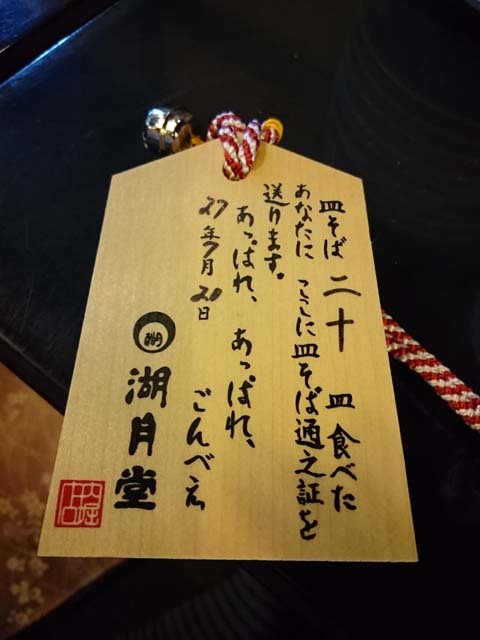 皿そば 二十 皿 食べた
あなたに ここに皿そば通之証を
送ります。
あっぱれ、あっぱれ、
ごんべえ
27年7月20日
湖月堂